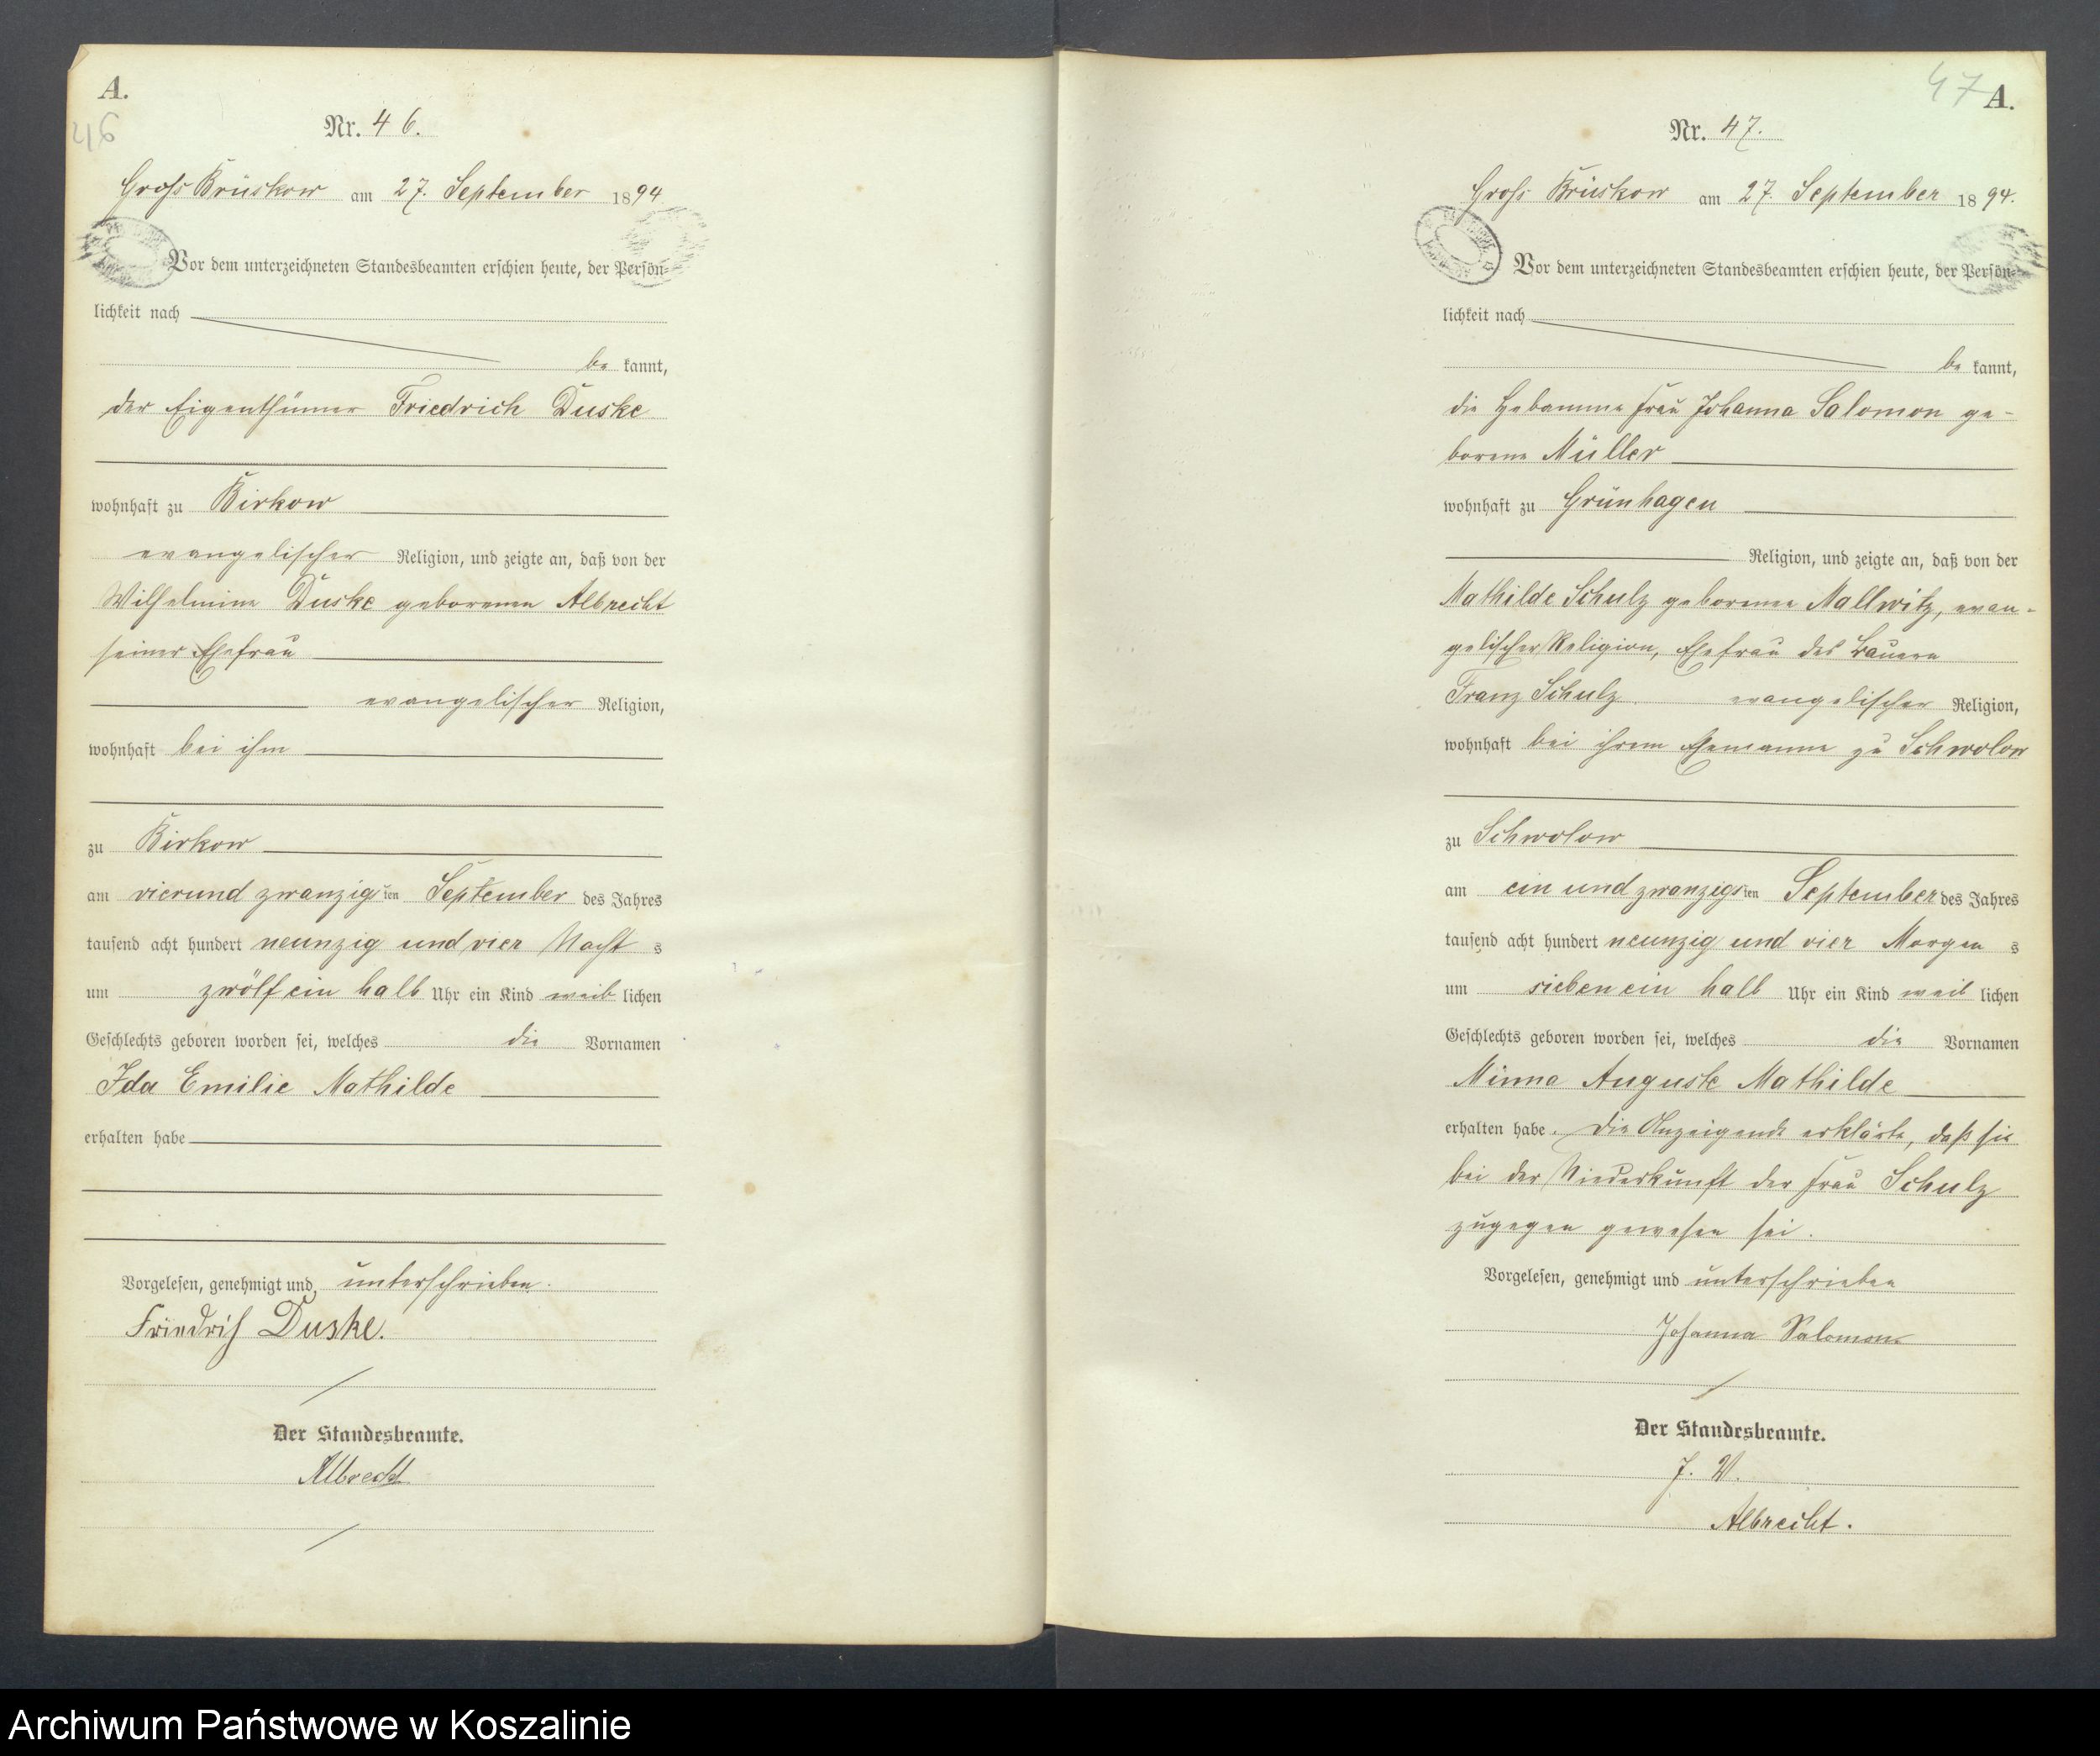 A.
46
Nr. 46.
Groß Brüskow am 27. September 1894
Vor dem unterzeichneten Standesbeamten erschien heute, der Persön-
lichkeit nach
be kannt,
der Eigenthümer Friedrich Duske
wohnhaft zu Birkow
evangelischer Religion, und zeigte an, daß von der
Wilhelmine Duske geborenen Albrecht
seiner Ehefrau
evangelischer Religion,
wohnhaft bei ihm
zu Birkow
am vierundzwanzigsten September des Jahres
tausend acht hundert neunzig und vier Nacht s
um zwölf ein halb Uhr ein Kind weib lichen
Geschlechts geboren worden sei, welches die Vornamen
Ida Emilie Mathilde
erhalten habe
Vorgelesen, genehmigt und unterschrieben.
Friedrich Duske.
Der Standesbeamte.
Albrecht
47 A.
Nr. 47.
Groß Brüskow am 27. September 1894.
Vor dem unterzeichneten Standesbeamten erschien heute, der Persön-
lichkeit nach
be kannt,
die Hebamme Frau Johanna Salomon ge-
borene Müller
wohnhaft zu Grünhagen
Religion, und zeigte an, daß von der
Mathilde Schulz geborenen Nallwitz, evan-
gelischer Religion, Ehefrau des Bauern
Franz Schulz evangelischer Religion,
wohnhaft bei ihrem Ehemanne zu Schwolow
zu Schwolow
am ein und zwanzigsten September des Jahres
tausend acht hundert neunzig und vier Morgen s
um sieben ein halb Uhr ein Kind weib lichen
Geschlechts geboren worden sei, welches die Vornamen
Minna Auguste Mathilde
erhalten habe. Die Anzeigende erklärte, daß sie
bei der Niederkunft der Frau Schulz
zugegen gewesen sei.
Vorgelesen, genehmigt und unterschrieben
Johanna Salomon
Der Standesbeamte.
J. V.
Albrecht.
Archiwum Państwowe w Koszalinie